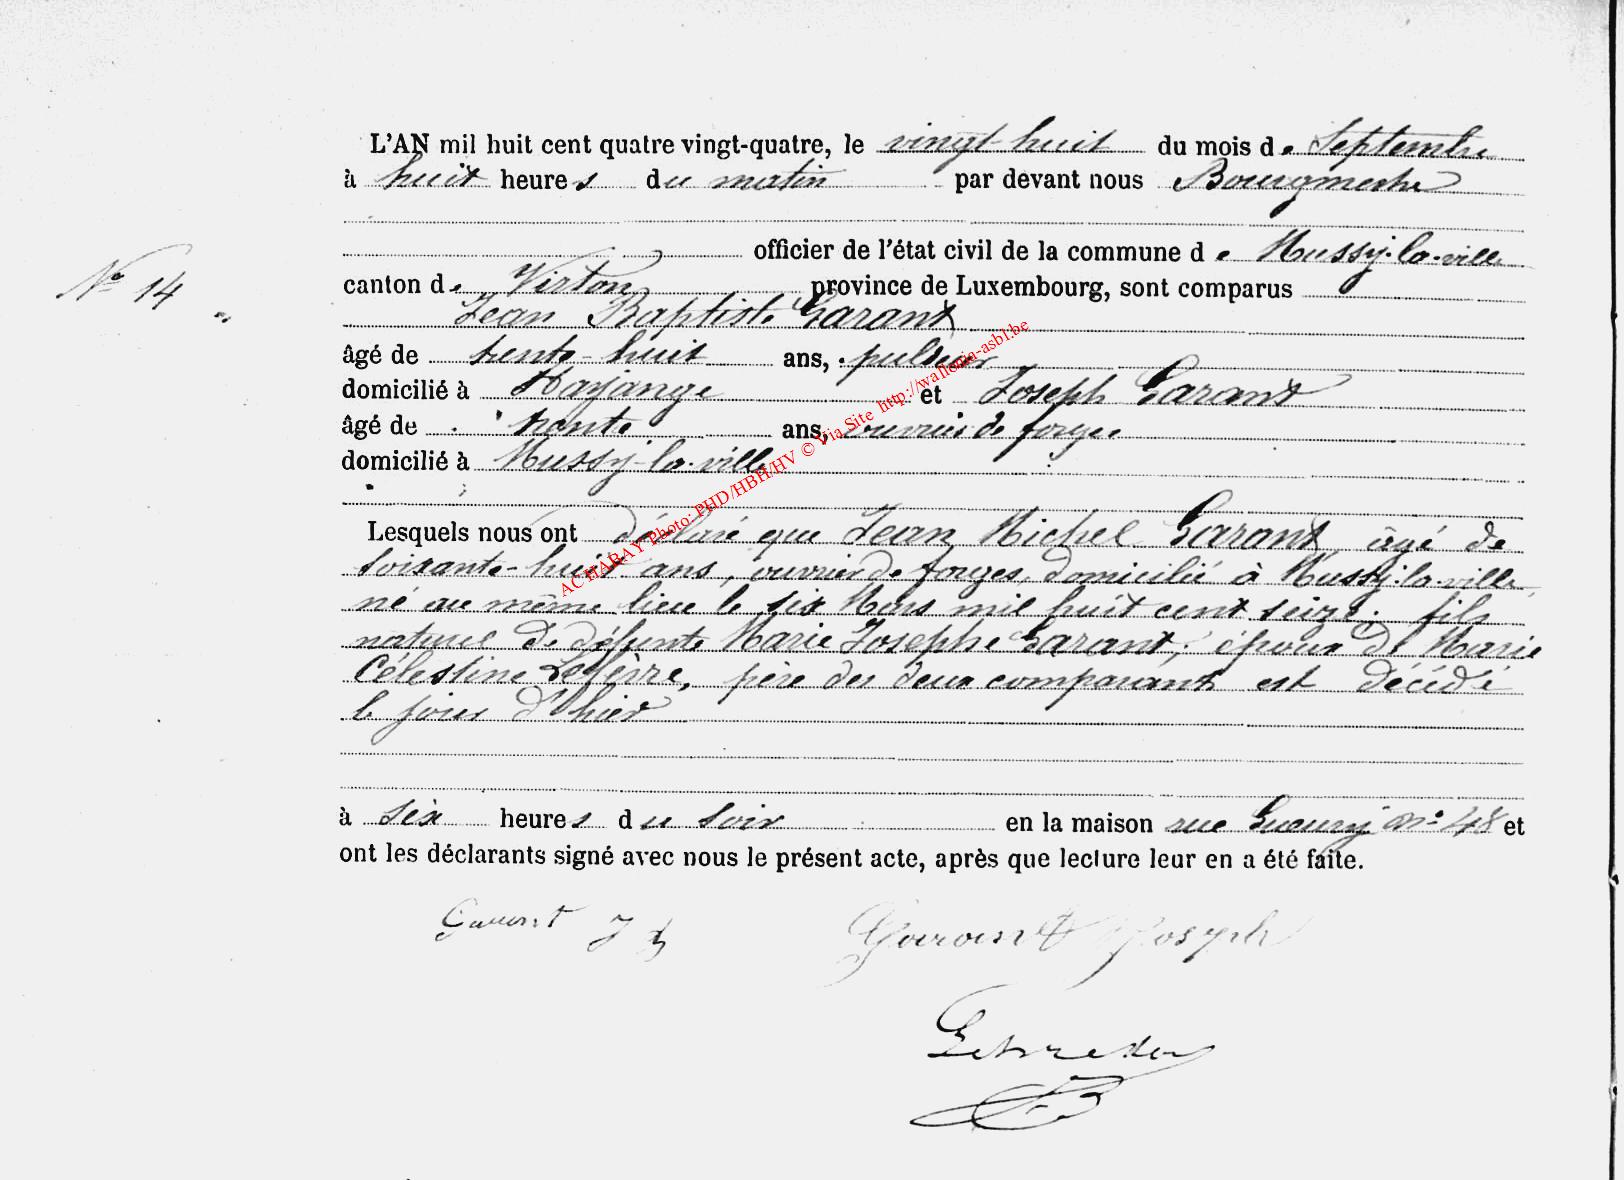 L'AN mil huit cent quatre vingt-quatre, le vingt-huit du mois de Septembre
à huit heures du matin par devant nous Bourgmestre
officier de l'état civil de la commune de Mussy-la-ville
N° 14
canton de Virton province de Luxembourg, sont comparus
Jean Baptiste Garant
âgé de trente-huit ans,
domicilié à Hayange et Joseph Garant
âgé de trente ans, ouvrier de forge
domicilié à Mussy-la-ville
ACHABAY Photo: PHD/HBH/HV © Via Site http://wallonia-asbl.be
Lesquels nous ont déclaré que Jean Michel Garant, âgé de
soixante-huit ans, ouvrier de forges, domicilié à Mussy-la-ville,
né au même lieu le six Mars mil huit cent seize, fils
naturel de défunte Marie Josephe Garant, époux de Marie
Célestine Lefèvre, père des deux comparants est décédé
le jour d'hier
à six heures du soir en la maison rue n° 48 et
ont les déclarants signé avec nous le présent acte, après que lecture leur en a été faite.
Garant J B
Garant Joseph